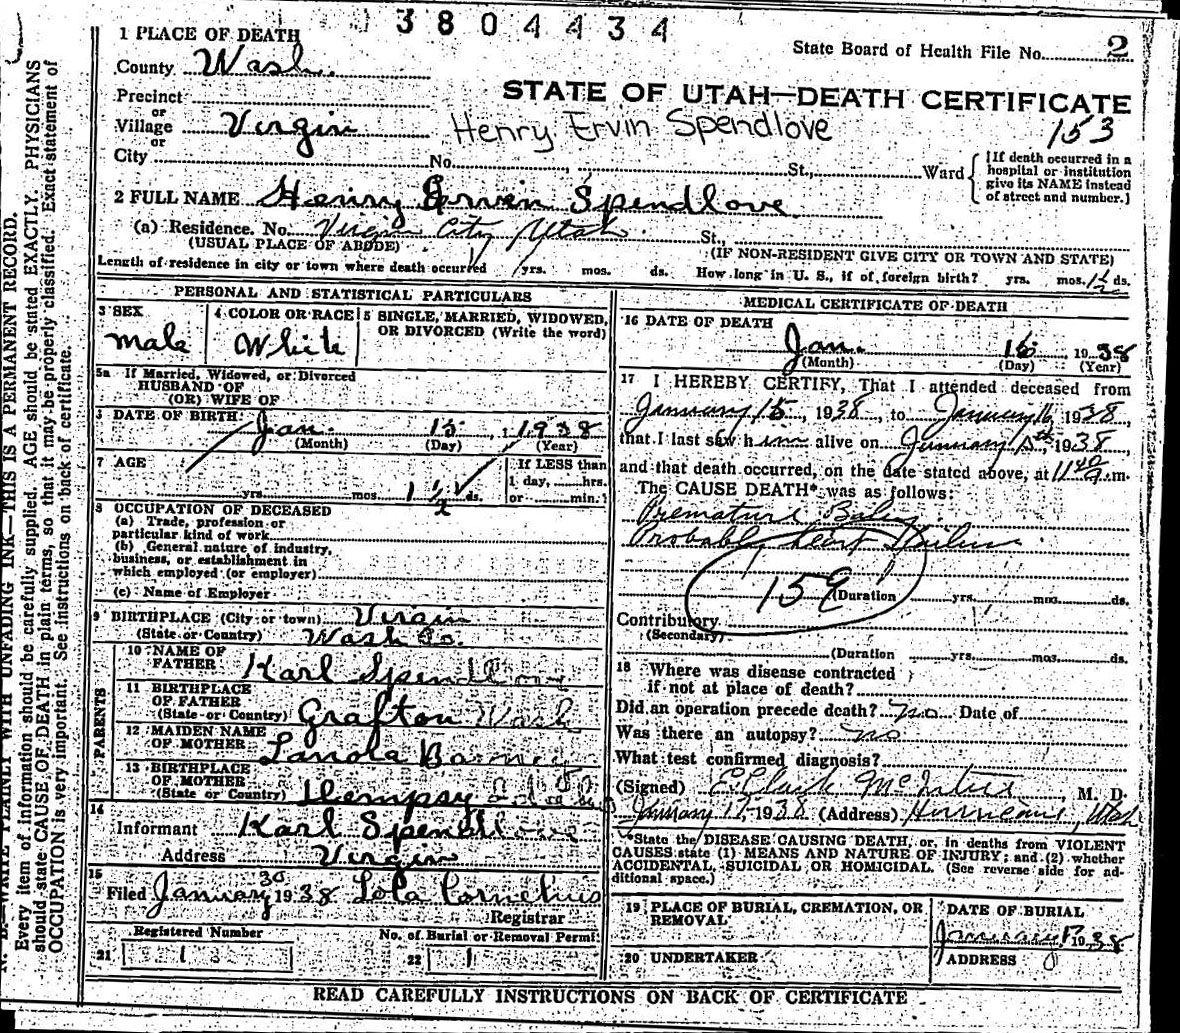 3804434
1 PLACE OF DEATH
State Board of Health File No. 2
County Wash.
STATE OF UTAH—DEATH CERTIFICATE
Precinct
or
Village Virgin
Henry Ervin Spendlove
153
or
City No. St., Ward
[If death occurred in a hospital or institution give its NAME instead of street and number.]
2 FULL NAME Henry Ervin Spendlove
(a) Residence. No. Virgin City Utah St.,
(USUAL PLACE OF ABODE)
(IF NON-RESIDENT GIVE CITY OR TOWN AND STATE)
Length of residence in city or town where death occurred yrs. mos. ds. How long in U. S., if of foreign birth? yrs. mos. 1½ ds.
PERSONAL AND STATISTICAL PARTICULARS
3 SEX
male
4 COLOR OR RACE
White
5 SINGLE, MARRIED, WIDOWED, OR DIVORCED (Write the word)
5a If Married, Widowed, or Divorced
HUSBAND OF
(OR) WIFE OF
DATE OF BIRTH: Jan. 15, 1938
(Month) (Day) (Year)
7 AGE
yrs. mos. 1½ ds.
If LESS than
1 day, hrs.
or min.
8 OCCUPATION OF DECEASED
(a) Trade, profession or
particular kind of work
(b) General nature of industry,
business, or establishment in
which employed (or employer)
(c) Name of Employer
9 BIRTHPLACE (City or town) Virgin
(State or Country) Wash Co.
PARENTS
10 NAME OF
FATHER Karl Spendlove
11 BIRTHPLACE
OF FATHER
(State or Country) Grafton Wash
12 MAIDEN NAME
OF MOTHER Lanola Barney
13 BIRTHPLACE
OF MOTHER
(State or Country)
14
Informant Karl Spendlove
Address Virgin
15
Filed January 30 1938 Lola Cornelius
Registrar
Registered Number
21 1
No. of Burial or Removal Permit
22 1
MEDICAL CERTIFICATE OF DEATH
16 DATE OF DEATH
Jan. 16, 1938
(Month) (Day) (Year)
17 I HEREBY CERTIFY, That I attended deceased from
January 15, 1938, to January 16 1938
that I last saw him alive on January 15th, 1938,
and that death occurred, on the date stated above, at 11 40 a m.
The CAUSE DEATH* was as follows:
Premature Baby
Probably heart Failure
159
(Duration yrs. mos. ds.
Contributory
(Secondary)
(Duration yrs. mos. ds.
18 Where was disease contracted
if not at place of death?
Did an operation precede death? no Date of
Was there an autopsy? no
What test confirmed diagnosis?
(Signed) E. Clark McIntire M. D.
January 17, 1938 (Address) Hurricane, Utah
*State the DISEASE CAUSING DEATH, or, in deaths from VIOLENT
CAUSES state (1) MEANS AND NATURE OF INJURY; and (2) whether
ACCIDENTAL, SUICIDAL OR HOMICIDAL. (See reverse side for ad-
ditional space.)
19 PLACE OF BURIAL, CREMATION, OR
REMOVAL
DATE OF BURIAL
January 17 1938
20 UNDERTAKER
ADDRESS
READ CAREFULLY INSTRUCTIONS ON BACK OF CERTIFICATE
N. B.—WRITE PLAINLY WITH UNFADING INK—THIS IS A PERMANENT RECORD.
Every item of information should be carefully supplied. AGE should be stated EXACTLY. PHYSICIANS
should state CAUSE OF DEATH in plain terms, so that it may be properly classified. Exact statement of
OCCUPATION is very important. See instructions on back of certificate.